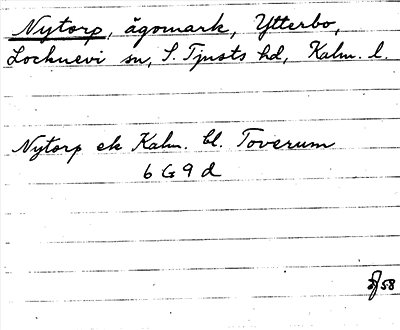 Nytorp, ägomark, Ytterbo,
Locknevi sn, S. Tjusts hd, Kalm. l.
Nytorp ek Kalm. bl. Toverum
6 G 9 d
58